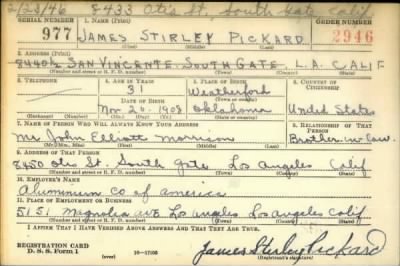 2/23/46 8433 Otis St., South Gate Calif
SERIAL NUMBER 1. NAME (Print) ORDER NUMBER
977 JAMES STIRLEY PICKARD 2946
(First) (Middle) (Last)
2. ADDRESS (Print)
8440½ SAN VINCENTE. SOUTH GATE. L.A. CALIF
(Number and street or R. F. D. number) (Town) (County) (State)
3. TELEPHONE 4. AGE IN YEARS 5. PLACE OF BIRTH 6. COUNTRY OF CITIZENSHIP
31 Weatherford
DATE OF BIRTH (Town or county)
Nov 24 - 1908 Oklahoma United States
(Exchange) (Number) (Mo.) (Day) (Yr.) (State or country)
7. NAME OF PERSON WHO WILL ALWAYS KNOW YOUR ADDRESS 8. RELATIONSHIP OF THAT PERSON
Mr John Elliott Morrison Brother in Law
(Mr., Mrs., Miss) (First) (Middle) (Last)
9. ADDRESS OF THAT PERSON
8450 Otis St. South Gate Los Angeles Calif
(Number and street or R. F. D. number) (Town) (County) (State)
10. EMPLOYER'S NAME
Aluminium Co of America
11. PLACE OF EMPLOYMENT OR BUSINESS
5151 Magnolia ave Los Angeles Los Angeles Calif
(Number and street or R. F. D. number) (Town) (County) (State)
I AFFIRM THAT I HAVE VERIFIED ABOVE ANSWERS AND THAT THEY ARE TRUE.
REGISTRATION CARD
D. S. S. Form 1 (over) 16—17105
James Stirley Pickard
(Registrant's signature)